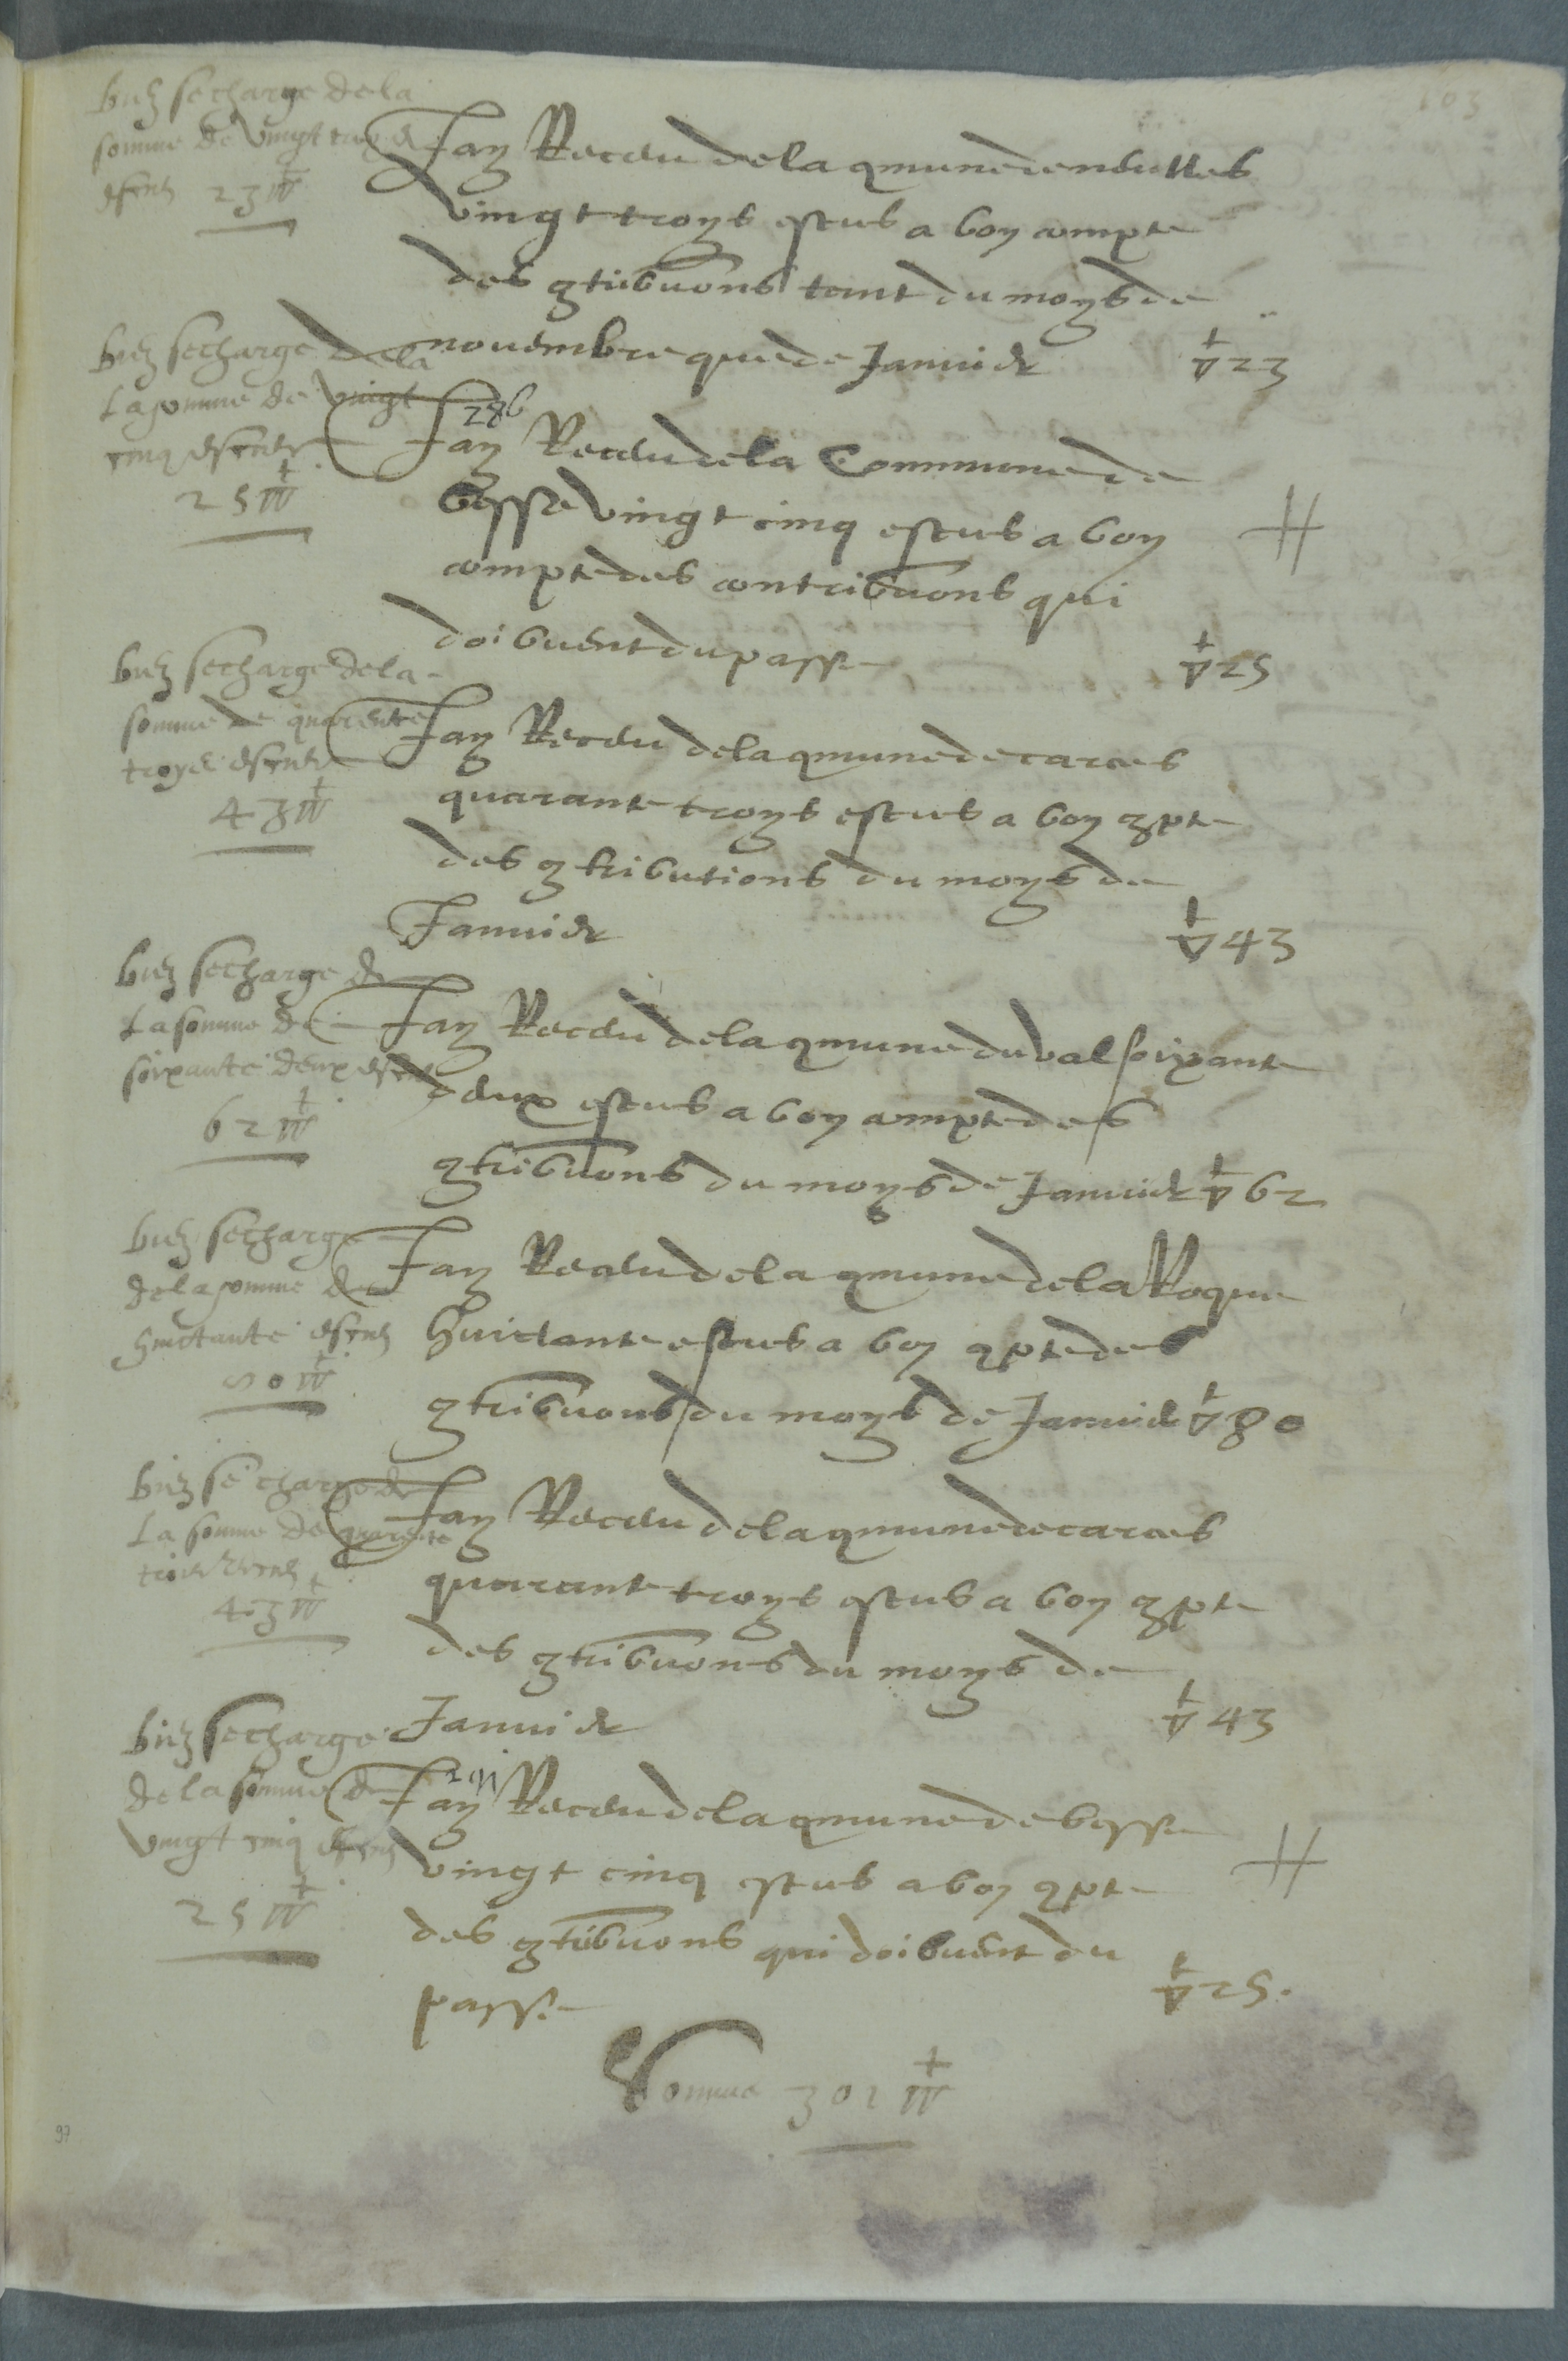 103
buz se charge de la
somme de vingt troys
escus 23 ▽
Jay Receu de la qmune dentulles
vingt troys escus a bon compte
des qtribuons tant du moys de
novembre que de Janvier ▽ 23
buz se charge de la
La somme de vingt
cinq escus
25 ▽
286
Jay Receu de la Commune de
besse vingt cinq escus a bon
compte des contribuons qui
doibuent du passe ▽ 25
buz se charge de la
somme de quarente
troys escus
43 ▽
Jay Receu de la qmune de carces
quarante troys escus a bon qpte
des qtributions du moys de
Janvier ▽ 43
buz se charge de
La somme de
soixante deux escus
62 ▽
Jay Receu de la qmune du val soixante
deux escus a bon compte des
qtribuons du moys de Janvier ▽ 62
buz se charge
de la somme de
huictante escus
80 ▽
Jay Receu de la qmune de la Roque
huictante escus a bon qpte des
qtribuons du moys de Janvier ▽ 80
buz se charge de
La somme de quarente
trois escus
43 ▽
Jay Receu de la qmune de carces
quarante troys escus a bon qpte
des qtribuons du moys de
Janvier ▽ 43
buz se charge
de la somme de
vingt cinq escus
25 ▽
291
Jay Receu de la qmune de besse
vingt cinq escus a bon qpte
des qtribuons qui doibuent du
passe ▽ 25.
Somme 301 ▽
97